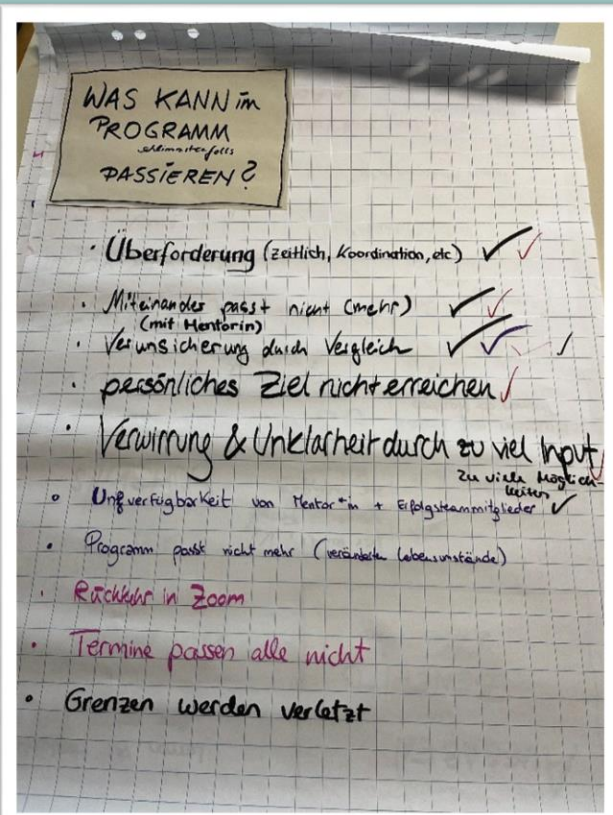 WAS KANN im
PROGRAMM
schlimmstenfalls
PASSIEREN?
· Überforderung (zeitlich, Koordination, etc)
· Miteinander passt nicht (mehr)
(mit Mentorin)
· Verunsicherung durch Vergleich
· persönliches Ziel nicht erreichen
· Verwirrung & Unklarheit durch zu viel Input
Zu viele Möglich-
keiten
· Unverfügbarkeit von Mentor*in + Erfolgsteammitglieder
· Programm passt nicht mehr (veränderte Lebensumstände)
· Rückkehr in Zoom
· Termine passen alle nicht
· Grenzen werden verletzt